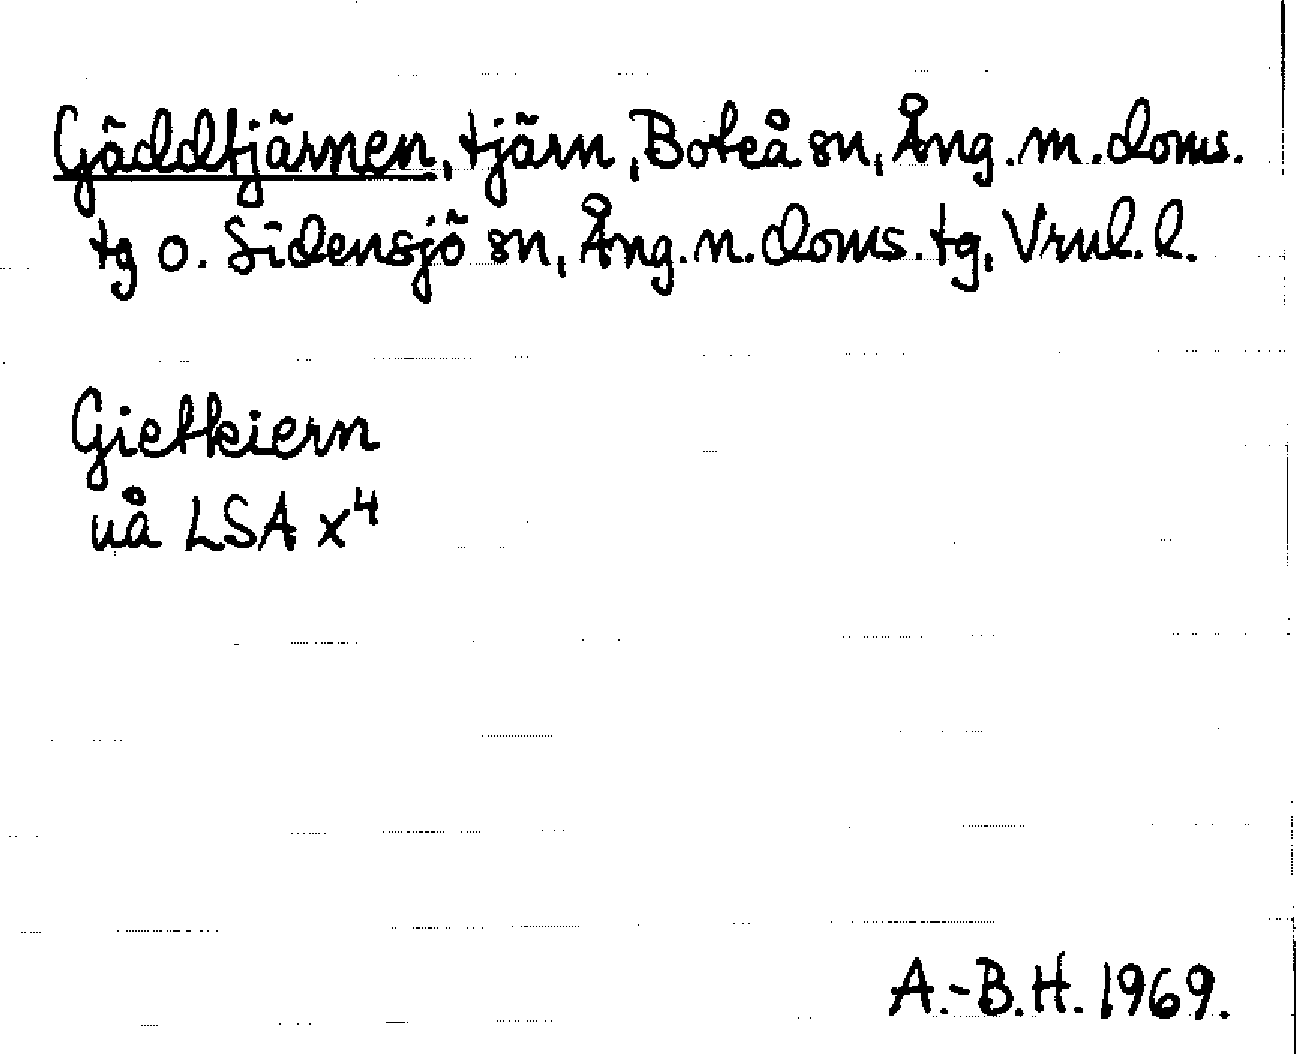 Gäddtjärnen, tjärn, Boteå sn, Ång. m. doms.
tg o. Sidensjö sn, Ång. n. doms. tg, Vrnl. l.
Gietkiern
uå LSA x⁴
A.-B.H. 1969.